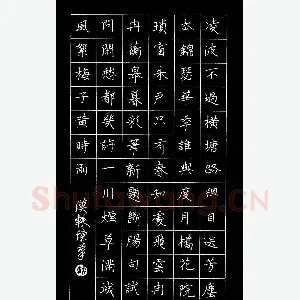 凌波不過橫塘路但目送芳塵
去錦瑟華年誰與度月橋花院
瑣窗朱戶只有春知處飛雲冉
冉蘅皋暮彩筆新題斷腸句試
問閑愁都幾許一川煙草滿城
風絮梅子黃時雨
Shufawang.CN